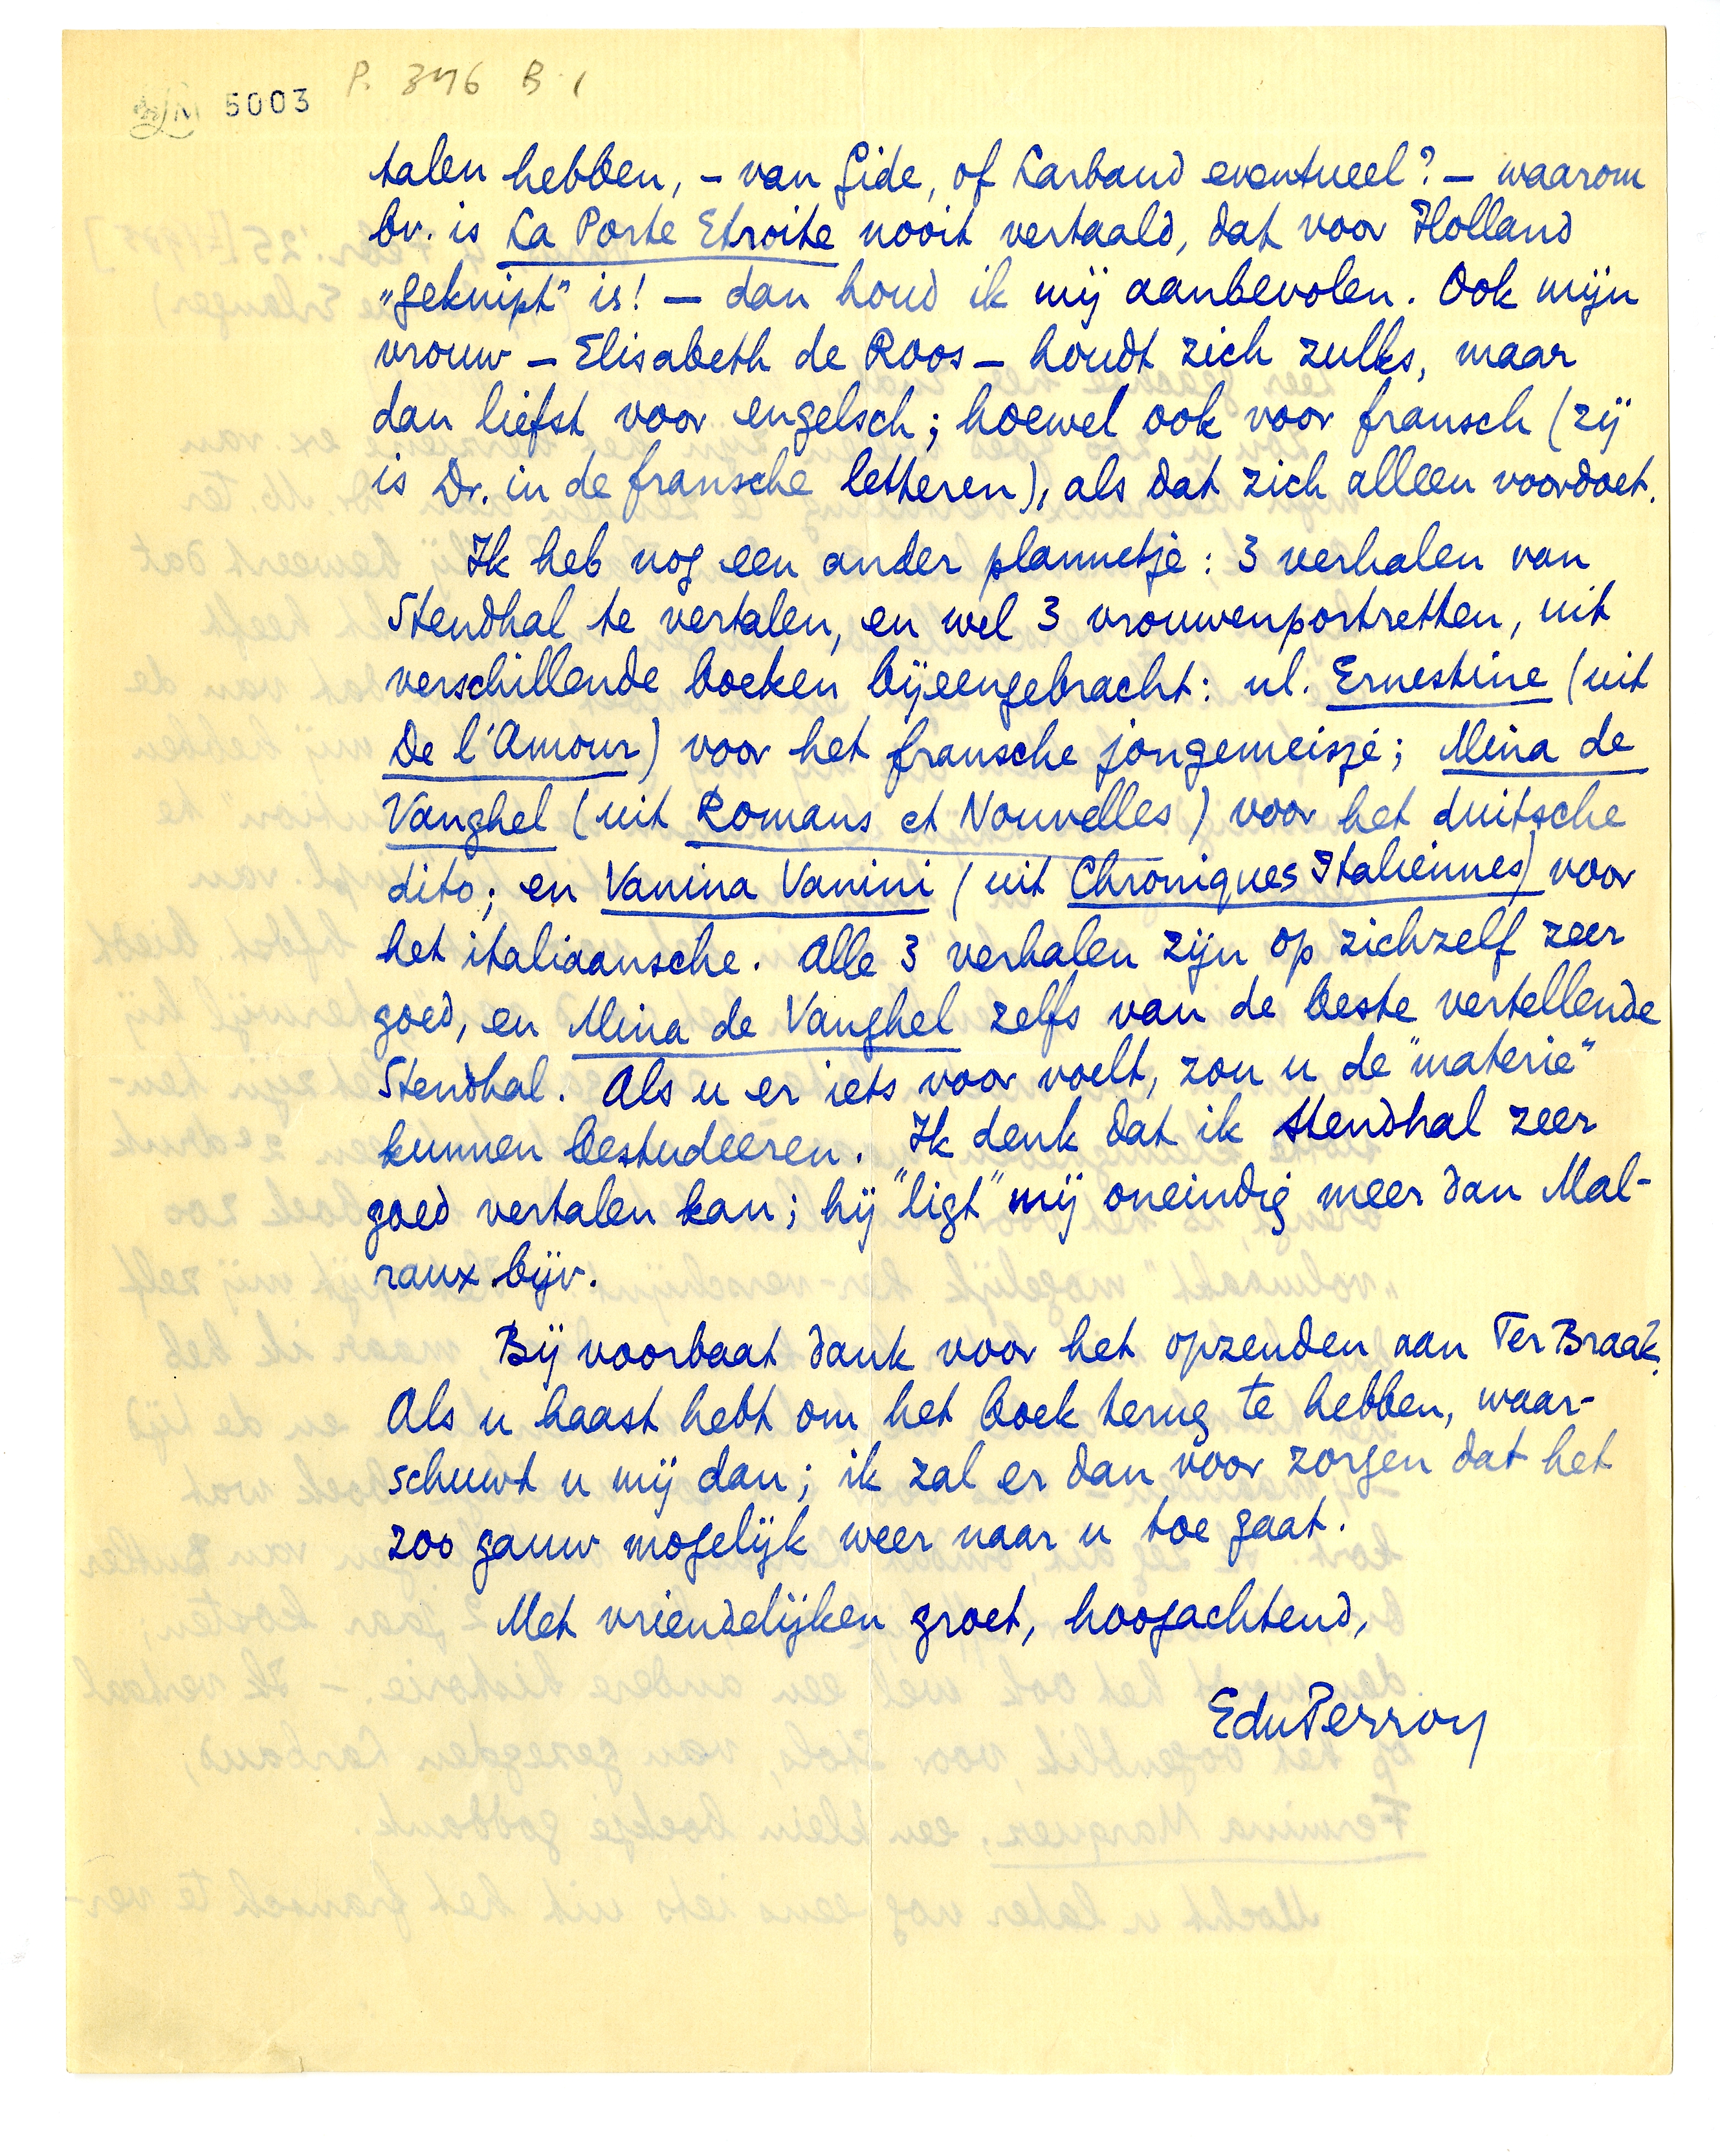 5003 P. 346 B 1
talen hebben, – van Gide, of Larbaud eventueel? – waarom
bv. is La Porte Etroite nooit vertaald, dat voor Holland
„geknipt” is! – dan houd ik mij aanbevolen. Ook mijn
vrouw – Elisabeth de Roos – houdt zich zulks, maar
dan liefst voor engelsch; hoewel ook voor fransch (zij
is Dr. in de fransche letteren), als dat zich alleen voordoet.
Ik heb nog een ander plannetje: 3 verhalen van
Stendhal te vertalen, en wel 3 vrouwenportretten, uit
verschillende boeken bijeengebracht: nl. Ernestine (uit
De l'Amour) voor het fransche jongemeisje; Mina de
Vanghel (uit Romans et Nouvelles) voor het duitsche
dito; en Vanina Vanini (uit Chroniques Italiennes) voor
het italiaansche. Alle 3 verhalen zijn op zichzelf zeer
goed, en Mina de Vanghel zelfs van de beste vertellende
Stendhal. Als u er iets voor voelt, zou u de "materie"
kunnen bestudeeren. Ik denk dat ik Stendhal zeer
goed vertalen kan; hij "ligt" mij oneindig meer dan Mal-
raux bijv.
Bij voorbaat dank voor het opzenden aan Ter Braak.
Als u haast hebt om het boek terug te hebben, waar-
schuwt u mij dan; ik zal er dan voor zorgen dat het
zoo gauw mogelijk weer naar u toe gaat.
Met vriendelijken groet, hoogachtend,
EduPerron